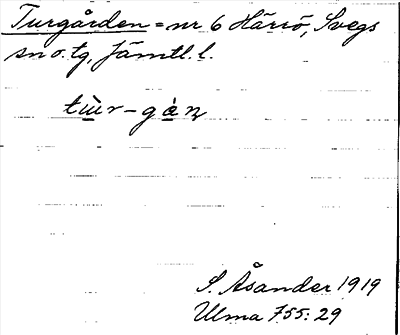 Turgården = nr 6 Härrö, Svegs
sn o. tg, Jämtl. l.
tùr-gàn
S. Åsander 1919
Ulma 755:29